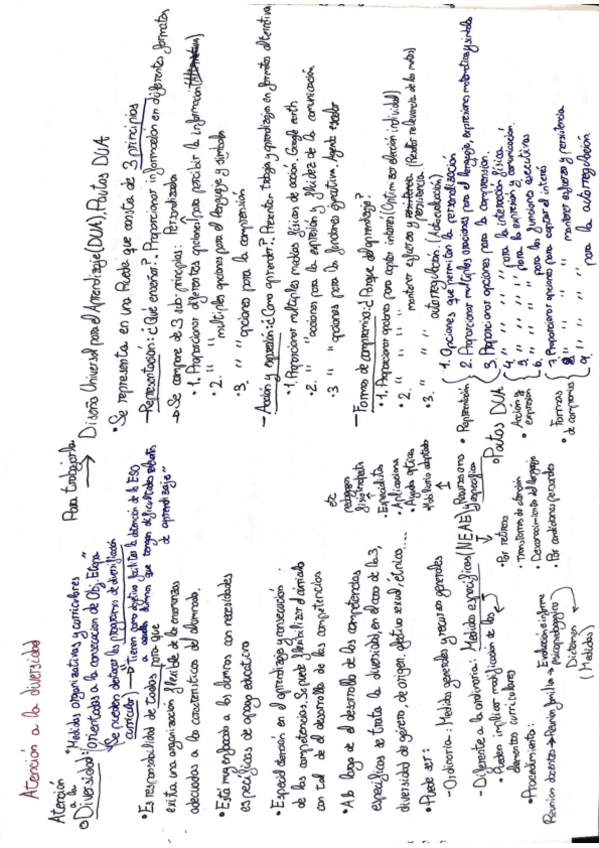 Atención a la diversidad
Atención
a la
Diversidad:
"Medidas organizativas y curriculares
orientadas a la consecución de Obj. Etapa."
Se pueden destacar los programas de diversificación
curricular) → Tienen como objetivo facilitar la obtención de la ESO
a aquellos alumnos que tengan dificultades
de aprendizaje"
• Es responsabilidad de todos para que
exista una organización flexible de la enseñanza
adecuada a las características del alumnado.
• Está muy enfocado a los alumnos con necesidades
específicas de apoyo educativo
• Especial atención en el aprendizaje y consecución
de las competencias. Se puede flexibilizar el currículo
con tal de el desarrollo de las competencias
• A lo largo de el desarrollo de las competencias
específicas se trata la diversidad, en el caso de la 3,
diversidad de género, de origen, afectivo sexual, étnica,...
• Puede ser:
- Ordinaria: Medidas generales y recursos generales
- Diferente a la ordinaria: Medidas específicas (NEAE) y Recursos
específicos
• Pueden implicar modificación de los
elementos curriculares
• Procedimiento:
Reunión docentes → Reunión familia → Evaluación e informe
psicopedagógico
Dictamen
(Medidas)
• Por retraso
• Transtornos de atención
• Desconocimiento del lenguaje
• Por condiciones personales
etc
pedagogo
fisioterapeuta
• Especialista
• Aplicaciones
• Ayudas ópticas
Mobiliario adaptado
Para trabajarla
→ Diseño Universal para el Aprendizaje (DUA), Pautas DUA
• Se representa en una Rueda que consta de 3 principios
- Representación: ¿Qué enseñar?. Proporcionar información en diferentes formatos
→ Se compone de 3 sub-principios: Personalizada
• 1. Proporcionar diferentes opciones para percibir la información
• 2. " " múltiples opciones para el lenguaje y símbolos
• 3. " " opciones para la comprensión
- Acción y expresión: ¿Cómo aprender?. Presentar trabajo y aprendizaje en formatos alternativos
• 1. Proporcionar múltiples medios físicos de acción. Google earth
• 2. " " opciones para la expresión y fluidez de la comunicación
• 3 " " opciones para las funciones ejecutivas. Agenda escolar
- Formas de compromiso: ¿Porque del aprendizaje?
• 1. Proporcionar opciones para captar interés (Optimizar elección individual)
• 2 " " " mantener esfuerzo y persistencia (Resaltar relevancia de las metas)
• 3. " " " autorregulación. (Autoevaluación)
• Pautas DUA
• Representación
1. Opciones que permitan la personalización
2. Proporcionar múltiples opciones para el lenguaje, expresiones matemáticas y símbolos
3. Proporcionar opciones para la comprensión.
• Acción y
expresión
4. " " " para la interacción física.
5. " " " para la expresión y comunicación.
6. " " " para las funciones ejecutivas
• Formas
de compromiso
7. Proporcionar opciones para captar el interés
8 " " " mantener esfuerzo y persistencia
9. " " " para la autorregulación